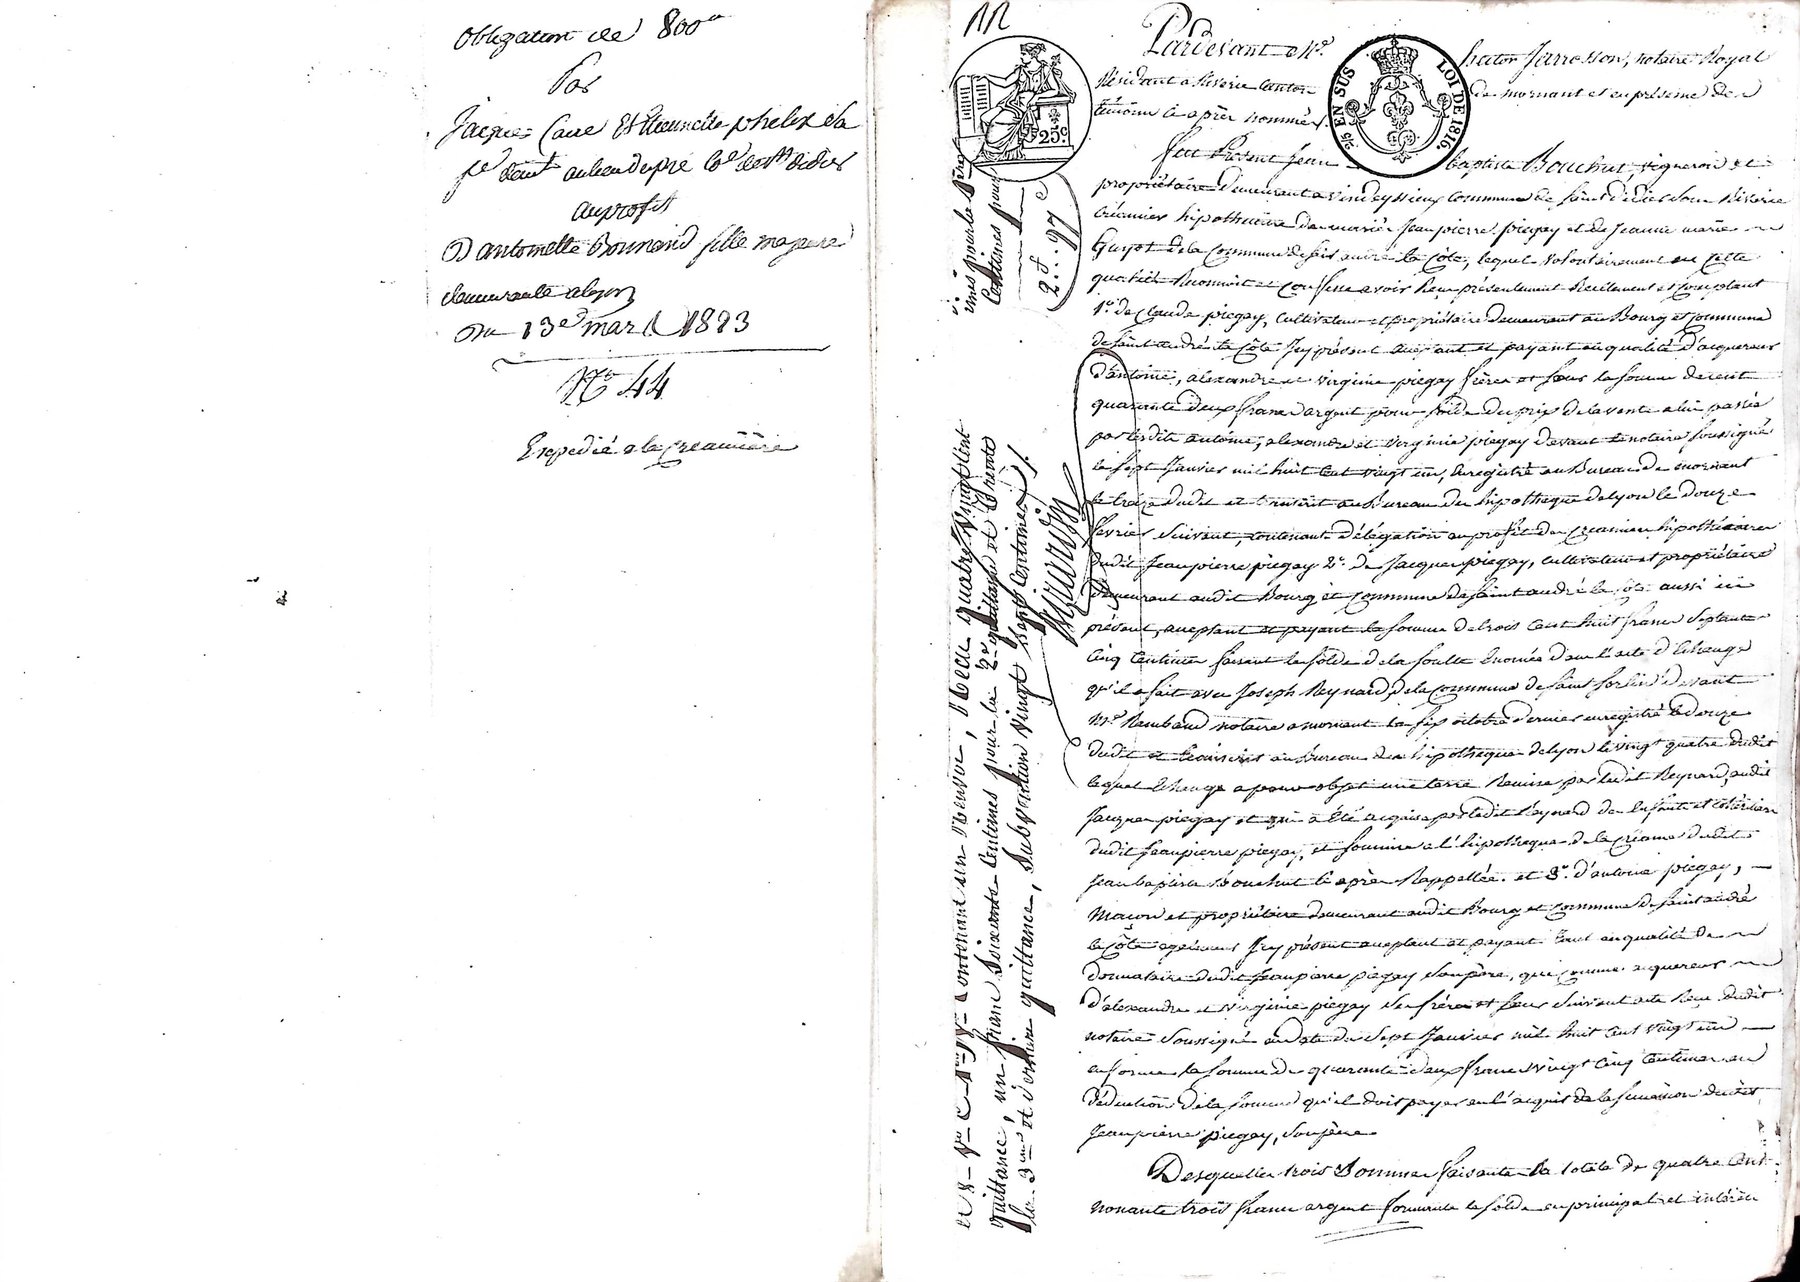 Obligation de 800#
Par
Jacques Caire Et Etiennette phelix sa
fe demt au lieu Dupré Cne de St didier
au profit
D'antoinette Bonnand fille majeure
demeurante a lyon
Du 13e mars 1823
No 44
Expedié a la creancière
Pardevant Me. haton Jarrosson, notaire Royal
Résidant a Riverie Canton de mornant et en présence des
témoins ci après nommés.
25c.
2/5 EN SUS LOI DE 1816.
fut Présent Jean baptiste Bouchut, vigneron et
propriétaire demeurant a vindeyssieux commune de Saint didier sous Riverie
Créancier hipothécaire des mariés Jean pierre piegay et de Jeanne marie
Guyot de la Commune de Saint andré la Côte, lequel volontairement en cette
qualité Reconnait et Confesse avoir Reçu présentement Réellement et Comptant
1o. de Claude piegay, cultivateur et propriétaire demeurant au Bourg et Commune
de Saint andré la Côte Icy présent acceptant et payant en qualité d'acquereur
d'antoine, alexandre et virginie piegay frères et sœur la somme de cent
quarante deux francs argent pour solde du prix de la vente a lui passée
par lesdits antoine, alexandre et virginie piegay devant le notaire soussigné
le sept Janvier mil huit cent vingt un, Enregistré au Bureau de mornant
le treize dudit et transcrit au Bureau des hipothèques de lyon le douze
fevrier suivant, contenant délégation au profit des créanciers hipothécaires
dudit Jean pierre piegay 2o. de Jacques piegay, cultivateur et propriétaire
demeurant audit Bourg et Commune de Saint andré la Côte aussi ici
présent, acceptant et payant la somme de trois cent huit francs Septante
Cinq Centimes faisant le solde de la soulte énoncée dans l'acte d'Echange
qu'il a fait avec Joseph Reynard, de la Commune de Saint Sorlin devant
Me. Rambaud notaire a mornant le six octobre dernier enregistré le douze
dudit et transcrit au Bureau des hipothèques de lyon le vingt quatre dudit
lequel Echange a pour objet une terre Remise par ledit Reynard, audit
Jacques piegay et qui a été acquise par ledit Reynard des Enfants et héritiers
dudit Jean pierre piegay, et soumise a l'hipothèque de la Créance dudit
Jean baptiste Bouchut ci après Rappellée. et 3o. d'antoine piegay,
maçon et propriétaire demeurant audit Bourg et Commune de Saint andré
la Côte egalement Icy présent acceptant et payant tant en qualité de
donnataire dudit Jean pierre piegay Son père, que comme acquereur
d'alexandre et virginie piegay ses frère et sœur suivant acte Reçu dudit
notaire soussigné en date du sept Janvier mil huit cent vingt un
la somme de quarante deux francs vingt cinq Centimes en
déduction de la somme qu'il doit payer en l'acquit de la succession dudit
Jean pierre piegay, son père
Desquelles trois sommes faisant la totale de quatre Cent
nonante trois francs argent formant le solde en principal et intérêts
Contenant un Renvoi, Reçu quatre vingt cent
quittance, un franc Soixante Centimes pour la 2e quittance et trente
la 3me et dernière quittance, Subvention Vingt Sept Centimes
2f..97c